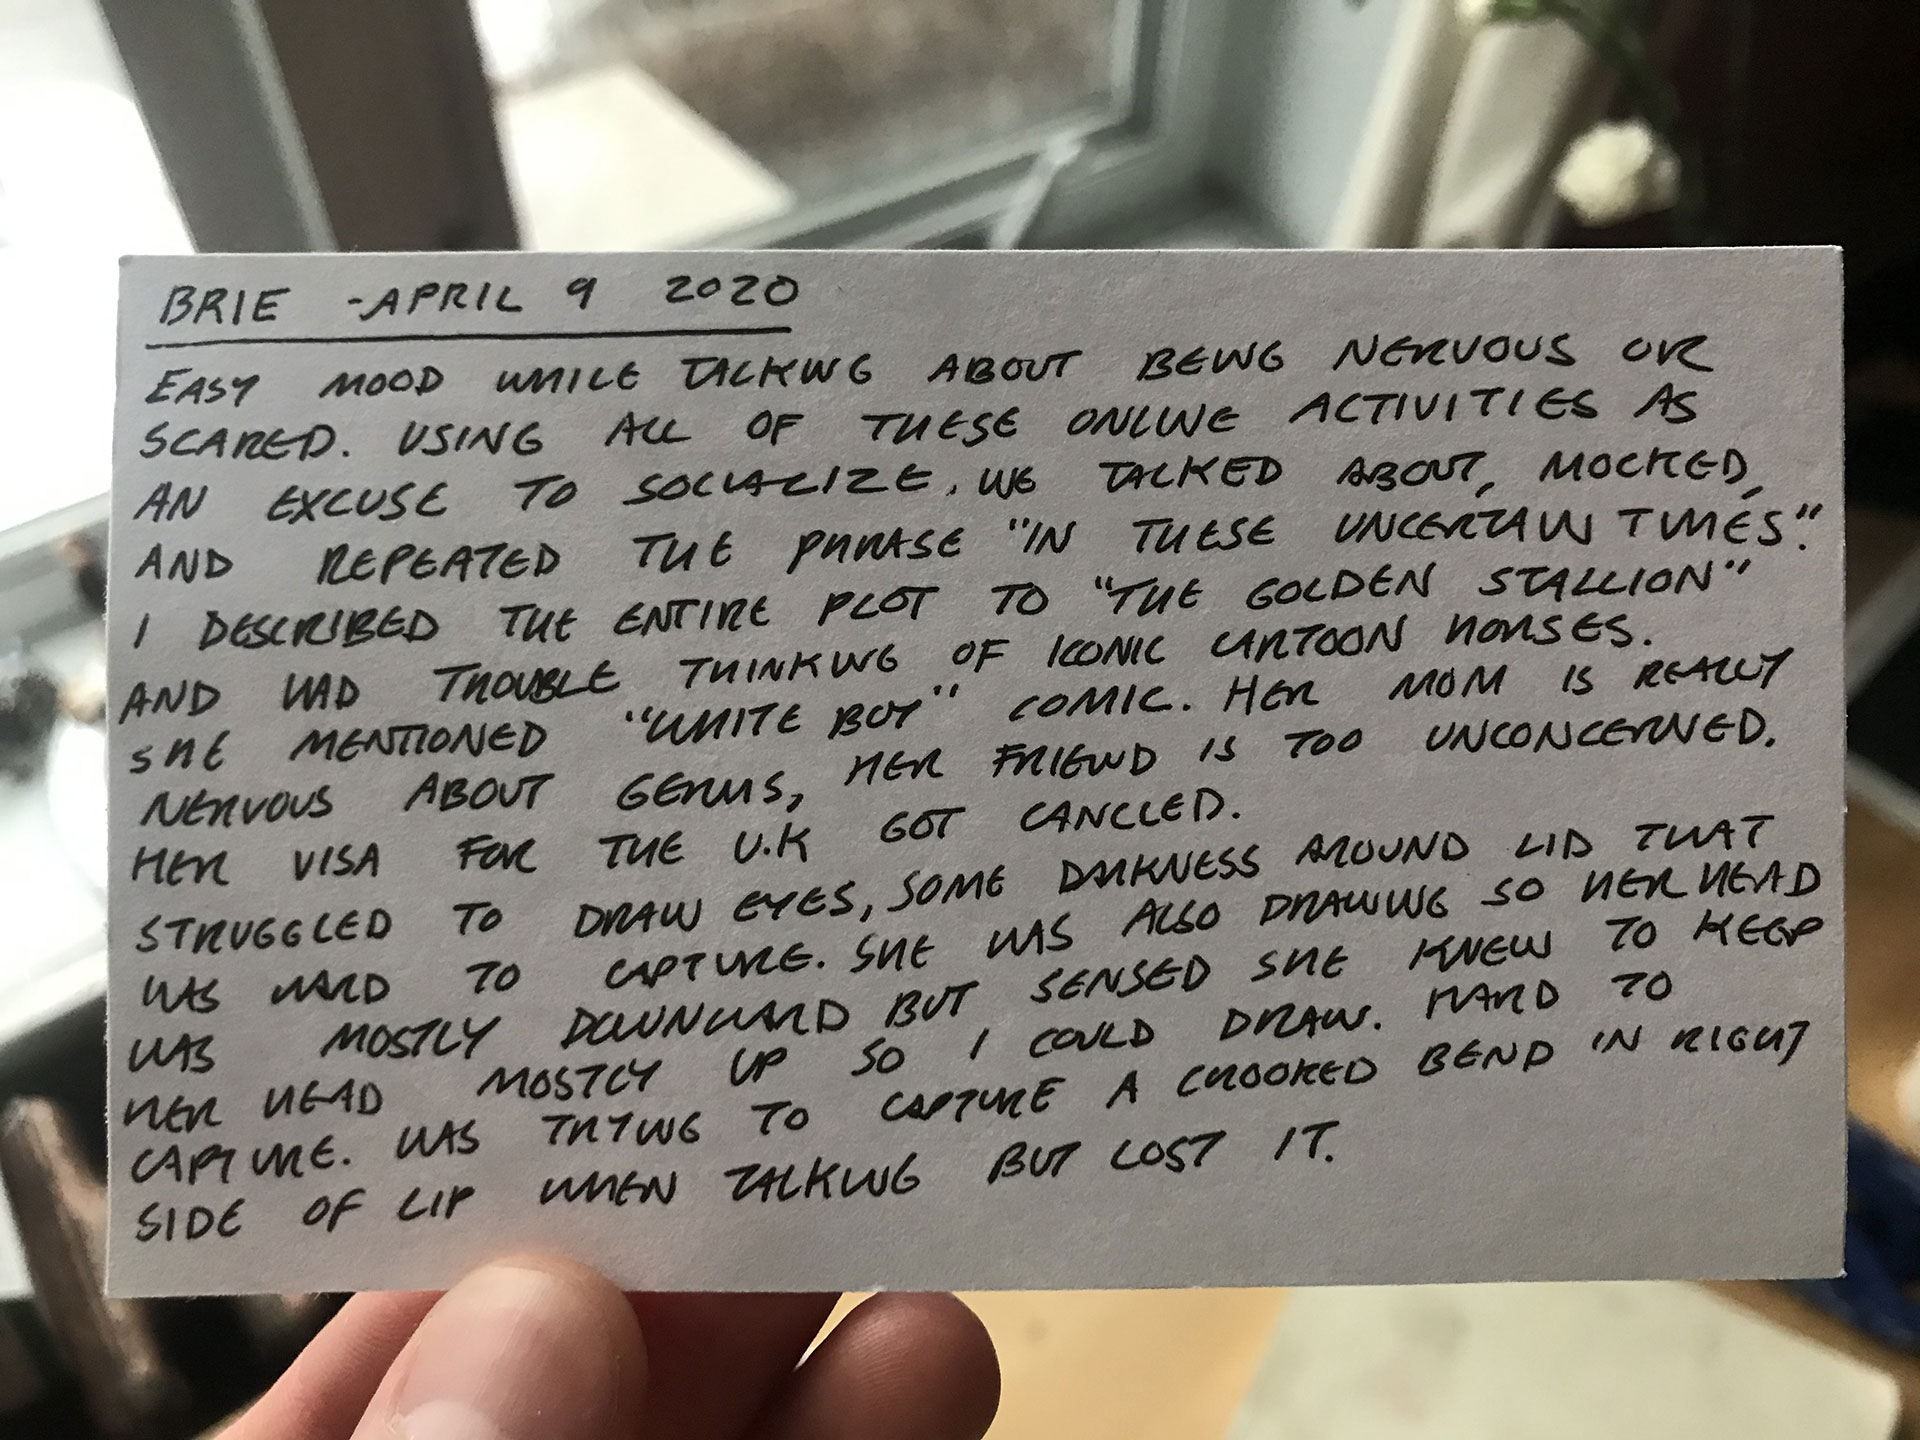 BRIE - APRIL 9 2020
EASY MOOD WHILE TALKING ABOUT BEING NERVOUS OR
SCARED. USING ALL OF THESE ONLINE ACTIVITIES AS
AN EXCUSE TO SOCIALIZE. WE TALKED ABOUT, MOCKED,
AND REPEATED THE PHRASE "IN THESE UNCERTAIN TIMES."
I DESCRIBED THE ENTIRE PLOT TO "THE GOLDEN STALLION"
AND HAD TROUBLE THINKING OF ICONIC CARTOON HORSES.
SHE MENTIONED "WHITE BOY" COMIC. HER MOM IS REALLY
NERVOUS ABOUT GERMS, HER FRIEND IS TOO UNCONCERNED.
HER VISA FOR THE U.K GOT CANCLED.
STRUGGLED TO DRAW EYES, SOME DARKNESS AROUND LID THAT
WAS HARD TO CAPTURE. SHE WAS ALSO DRAWING SO HER HEAD
WAS MOSTLY DOWNWARD BUT SENSED SHE KNEW TO KEEP
HER HEAD MOSTLY UP SO I COULD DRAW. HARD TO
CAPTURE. WAS TRYING TO CAPTURE A CROOKED BEND IN RIGHT
SIDE OF LIP WHEN TALKING BUT LOST IT.